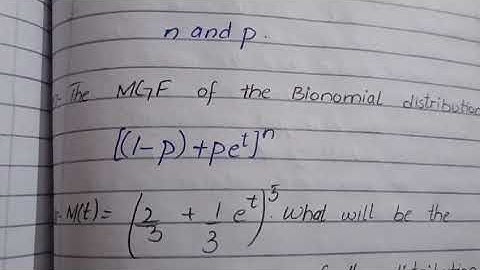 n and p.
The MGF of the Bionomial distribution
[(1-p)+pe^t]^n
M(t) = (2/3 + 1/3 e^t)^5. What will be the